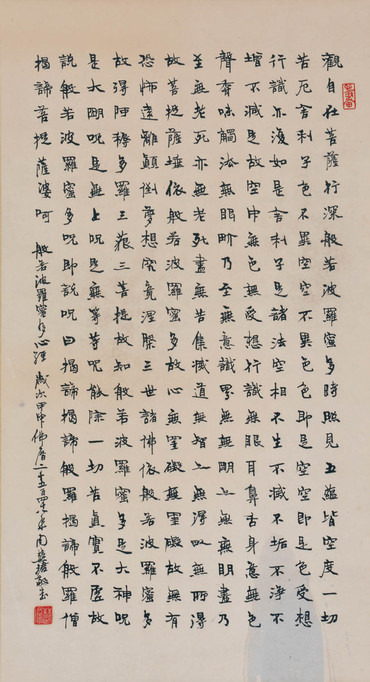 觀自在菩薩行深般若波羅蜜多時照見五蘊皆空度一切
苦厄舍利子色不異空空不異色色即是空空即是色受想
行識亦復如是舍利子是諸法空相不生不滅不垢不淨不
增不減是故空中無色無受想行識無眼耳鼻舌身意無色
聲香味觸法無眼界乃至無意識界無無明亦無無明盡乃
至無老死亦無老死盡無苦集滅道無智亦無得以無所得
故菩提薩埵依般若波羅蜜多故心無罣礙無罣礙故無有
恐怖遠離顛倒夢想究竟涅槃三世諸佛依般若波羅蜜多
故得阿耨多羅三藐三菩提故知般若波羅蜜多是大神呪
是大明呪是無上呪是無等等呪能除一切苦真實不虛故
說般若波羅蜜多呪即說呪曰揭諦揭諦般羅揭諦般羅僧
揭諦菩提薩婆呵 般若波羅蜜多心經 歲次甲申佛曆二千五百四 周 敬書